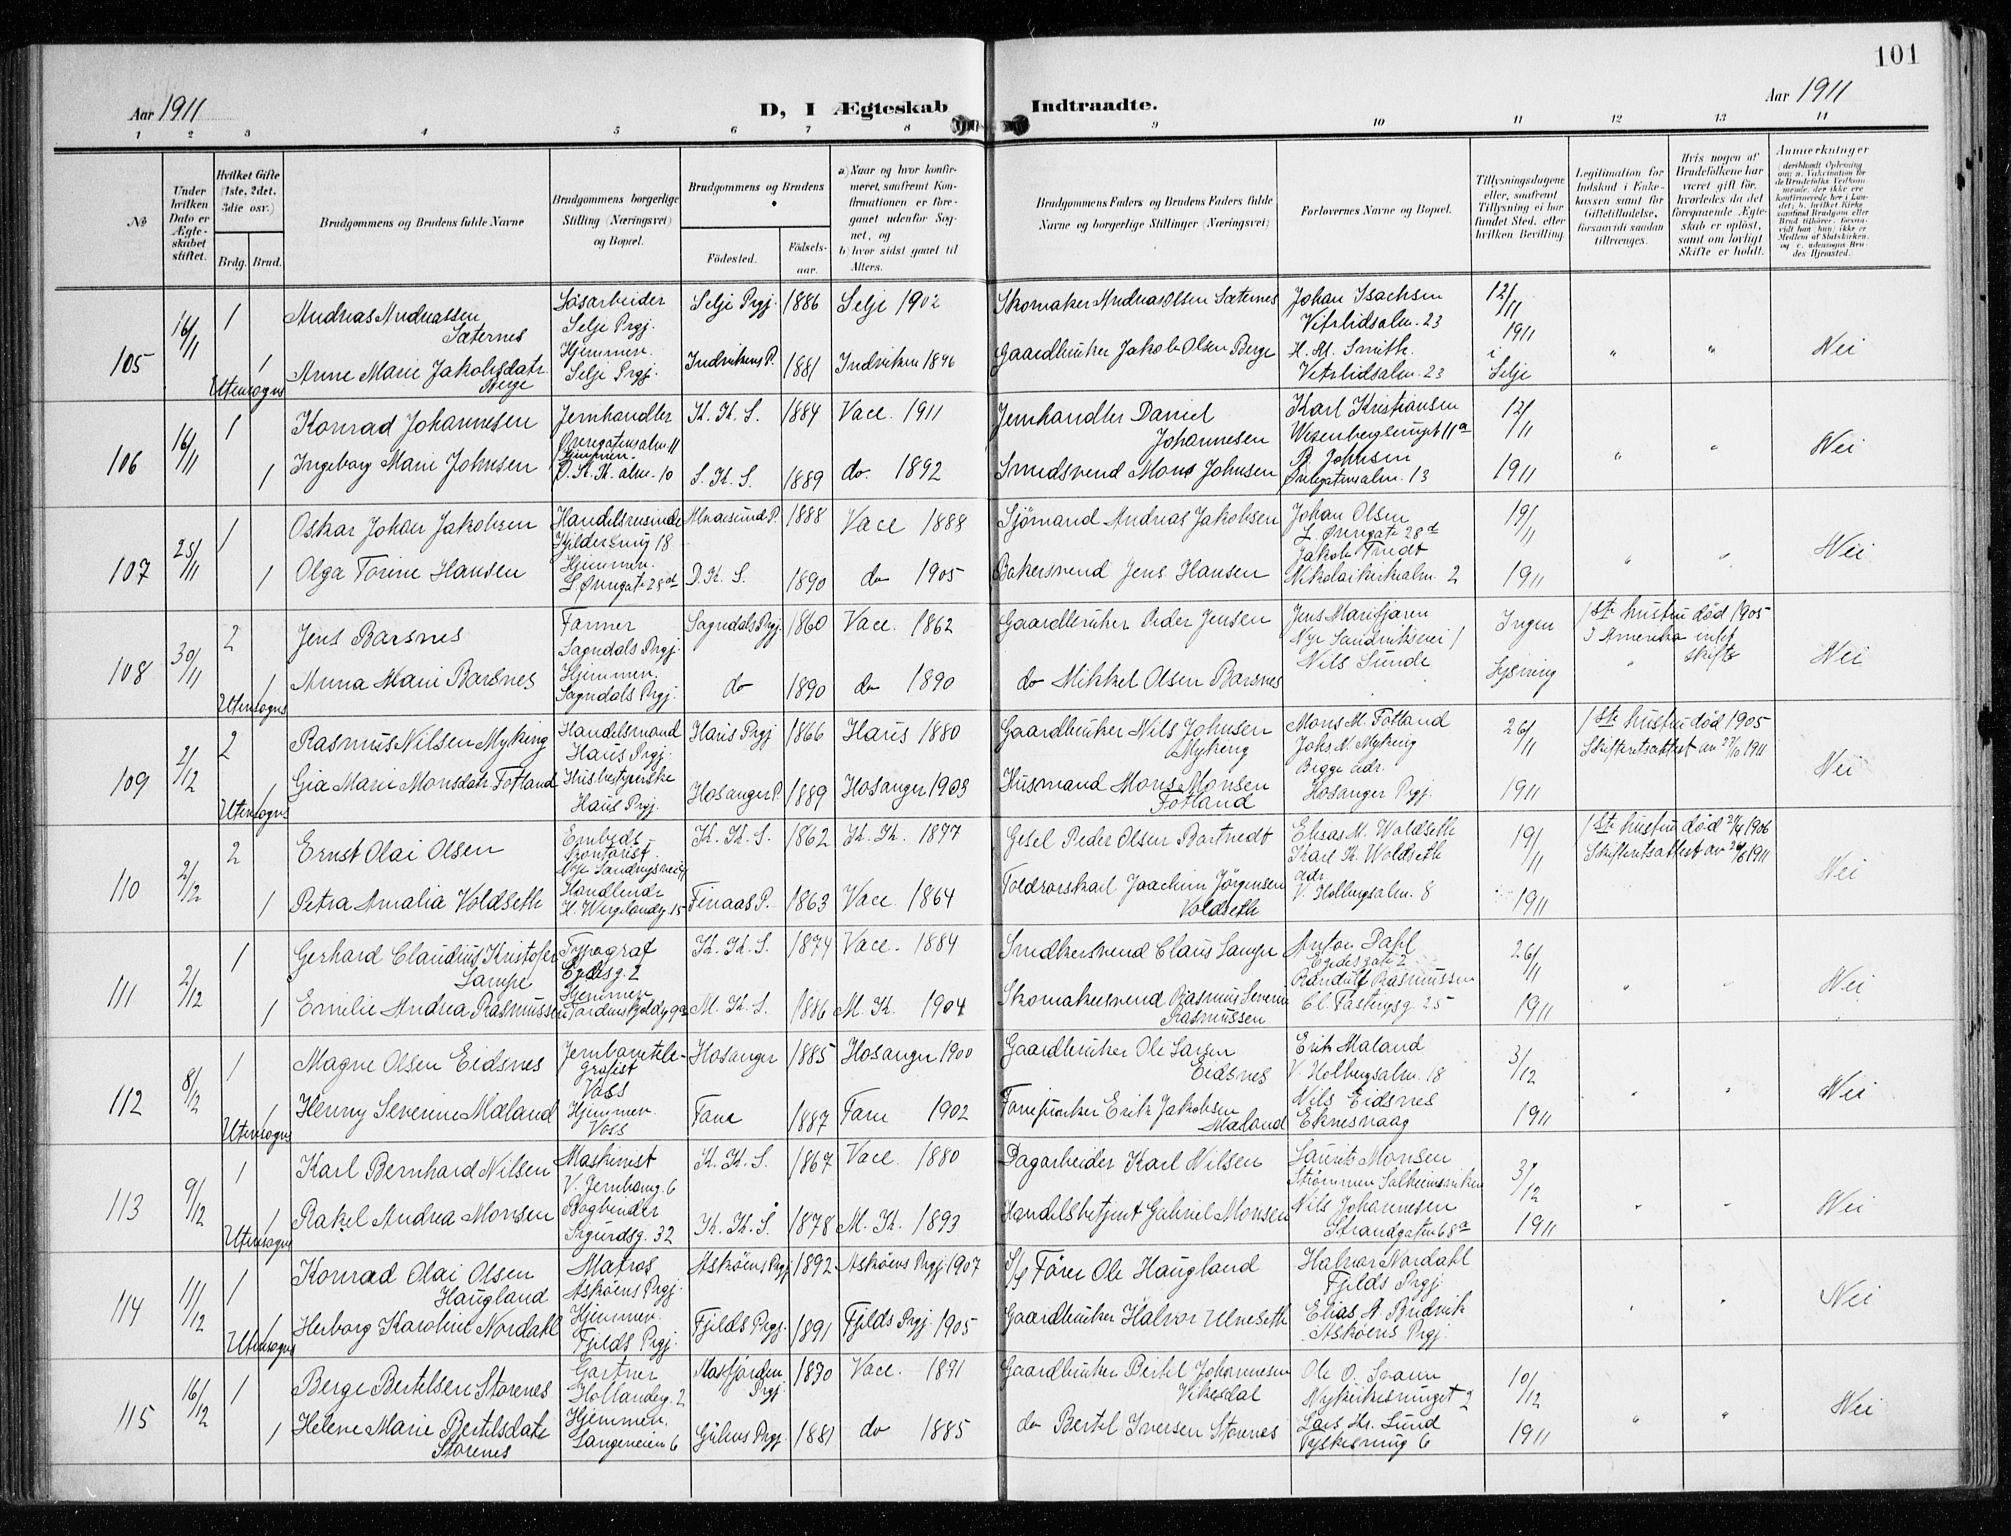 101
Aar 1911
D, I Ægteskab Indtraadte.
Aar 1911
1 2 3 4 5 6 7 8 9 10 11 12 13 14
№
Under hvilken Dato er Ægteskabet stiftet.
Hvilket Gifte (1ste, 2det, 3die osv.)
Brdg. Brud.
Brudgommens og Brudens fulde Navne
Brudgommens borgerlige Stilling (Næringsvei) og Bopæl.
Brudgommens og Brudens
Fødested. Fødselsaar.
a) Naar og hvor konfirmeret, saafremt Konfirmationen er foregaaet udenfor Sognet, og
b) hvor sidst gaaet til Alters.
Brudgommens Faders og Brudens Faders fulde Navne og borgerlige Stillinger (Næringsvei)
Forlovernes Navne og Bopæl.
Tillysningsdagene eller, saafremt Tillysning ei har fundet Sted, efter hvilken Bevilling.
Legitimation for Indskud i Enkekassen samt for Giftetilladelse, forsaavidt saadan tiltrænges.
Hvis nogen af Brudefolkene har været gift før, hvorledes da det foregaaende Ægteskab er opløst, samt om lovligt Skifte er holdt.
Anmerkninger
105 16/11 1 Andreas Andreassen Sæternes
Selje Prgj. Selje Prgj. 1886 Selje 1902
Skomaker Andreas Olsen Sæternes
Johan Isachsen Vetrlidsalm. 23
12/11 1911 i Selje
1 Anne Marie Jakobsdatr. Berge
Utensogns
Hjemmen. Selje Prgj. Indvikens P. 1881 Indviken 1896
Gaardbruker Jakob Olsen Berge
H. M. Smith. Vetrlidsalm. 23
" " Nei
106 16/11 1 Konrad Johannesen
Jernhandler
K. K. S. 1884 Vacc. 1911
Jernhandler Daniel Johannesen
Karl Kristiansen
12/11 1911
1 Ingeborg Marie Johnsen
Hjemmen. D. K. K. alm. 10 S. K. S. 1889 do. 1892
Smedsvend Mons Johnsen
Johnsen
" " Nei
107 25/11 1 Oskar Johan Jakobsen
Handelsreisende
1888 Vacc 1888
Sjömand Andreas Jakobsen
Johan Olsen
19/11 1911
1 Olga Torine Hansen
Hjemmen. D. K. S. 1890 do 1905
Bakersvend Jens Hansen
Nikolaikirkealm. 2
" " Nei
108 30/11 2 Jens Barsnes
Farmer Sogndals Prgj. Sogndals Prgj. 1860 Vacc. 1862
Gaardbruker Peder Jensen
Jens Marifjæren
Ingen lysning
1ste hustru död 1905 i Amerika intet skifte
1 Anna Marie Barsnes
Utensogns
Hjemmen. Sogndals Prgj. do 1890 do 1890
do Mikkel Olsen Barsnes
Nils Sunde
" Nei
109 2/12 2 Rasmus Nilsen Myking
Handelsmand Haus Prgj. Haus Prgj 1866 Haus 1880
Gaardbruker Nils Johnsen Myking
Mons M. Fotland
Johs N. Myking
26/11 1911
1ste hustru död 1905
1 Gia Marie Monsdatr Fotland
Utensogns
Husbestyrerske Haus Prgj. Hosanger P. 1889 Hosanger 1903
Husmand Mons Monsen Fotland
Begge adr. Hosanger Prgj.
Nei
110 2/12 2 Ernst Olai Olsen
K. K. S. 1862 K. K. 1877
Gesel Peder Olsen
Elias M. Woldseth
Karl K. Woldseth
19/11 1911
1ste hustru död 2/4 1906
1 Petra Amalia Voldseth
Handlende Finaas P. 1863 Vacc 1864
Toldrorskarl Joachim Jörgensen Voldseth
adr. V. Holbergsalm. 8
Nei
111 2/12 1 Gerhard Claudius Kristofer Lampe
Typograf Egedesg. 2 K. K. S. 1874 Vacc. 1884
Snedkersvend Claus Lampe
Anton Dahl Egedesgate 2
26/11 1911
1 Emilie Andrea Rasmussen
Hjemmen Tordenskjoldsg 9a M. K. S. 1886 M. K. 1904
Skomakersvend Rasmus Severin Rasmussen
Randulf Rasmussen
" " Nei
112 8/12 1 Magne Olsen Eidsnes
Jernbanetelegrafist Voss Hosanger 1885 Hosanger 1900
Gaardbruker Ole Larsen Eidsnes
Erik Mæland V. Holbergsalm. 18
3/12 1911
1 Henny Severine Mæland
Utensogns
Hjemmen. Voss Fane 1887 Fane 1902
Erik Jakobsen Mæland
Nils Eidsnes Eknesvaag
" " Nei
113 9/12 1 Karl Bernhard Nilsen
Maskinist V. Jernbaneg. 6 K. K. S. 1867 Vacc. 1880
Dagarbeider Karl Nilsen
Laurits Monsen
3/12 1911
1 Rakel Andrea Monsen
Utensogns
Bogbinder Sigurdsg. 32 K. K. S. 1878 M. K. 1893
Handelsbetjent Gabriel Monsen
Nils Johannesen Strandgaten 68a
" " Nei
114 11/12 1 Konrad Olai Olsen Haugland
Matros Askøens Prgj. Askøens Prgj 1892 Askøens Prgj 1907
S/s Fører Ole Haugland
Halvor Nordahl Fjelds Prgj
1 Herborg Karoline Nordahl
Utensogns
Hjemmen. Fjelds Prgj. Fjelds Prgj. 1891 Fjelds Prgj. 1905
Gaardbruker Halvor Ulveseth
Elias A. Askøens Prgj.
" " Nei
115 16/12 1 Berge Bertelsen Storenes
Gartner Hollenderg. 2 1870 Vacc. 1871
Gaardbruker Bertel Johannesen Vikesdal
Ole O. Nykirkesmuget 2
10/12 1911
1 Helene Marie Bertelsdatr Storenes
Hjemmen. Langeveien 6 Gulens Prgj. 1881 do 1885
do Bertel Iversen Storenes
Lars Kr. Lund
" " Nei